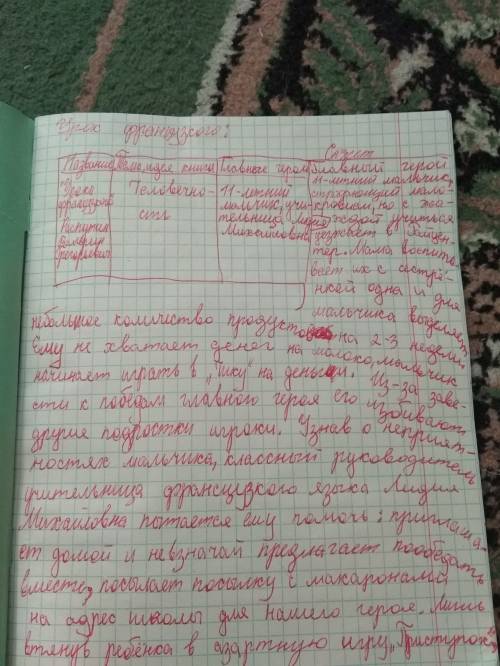 Урок французского:
Сюжет
Название Тема, идея книги Главные герои
"Уроки французского"
Распутин Валентин Григорьевич
Человечно-
сть
11-летний
мальчик, учи-
тельница Лидия
Михайловна
Главный герой
11-летний мальчик,
страдающий мало-
кровием, но с жа-
ждой учиться
уезжает в Райцен-
тер. Мама воспиты-
вает их с сестрё-
нкой одна и для
мальчика выделяет
небольшое количество продуктов на 2-3 недели
Ему не хватает денег на молоко, мальчик
начинает играть в "чику" на деньги. Из-за зави-
сти к победам главного героя его избивают
другие подростки игроки. Узнав о неприят-
ностях мальчика, классный руководитель
учительница французского языка Лидия
Михайловна пытается ему помочь: приглаша-
ет домой и невзначай предлагает пообедать
вместе, посылает посылку с макаронами
на адрес школы для нашего героя. Лишь
втянув ребёнка в азартную игру "Приступок",